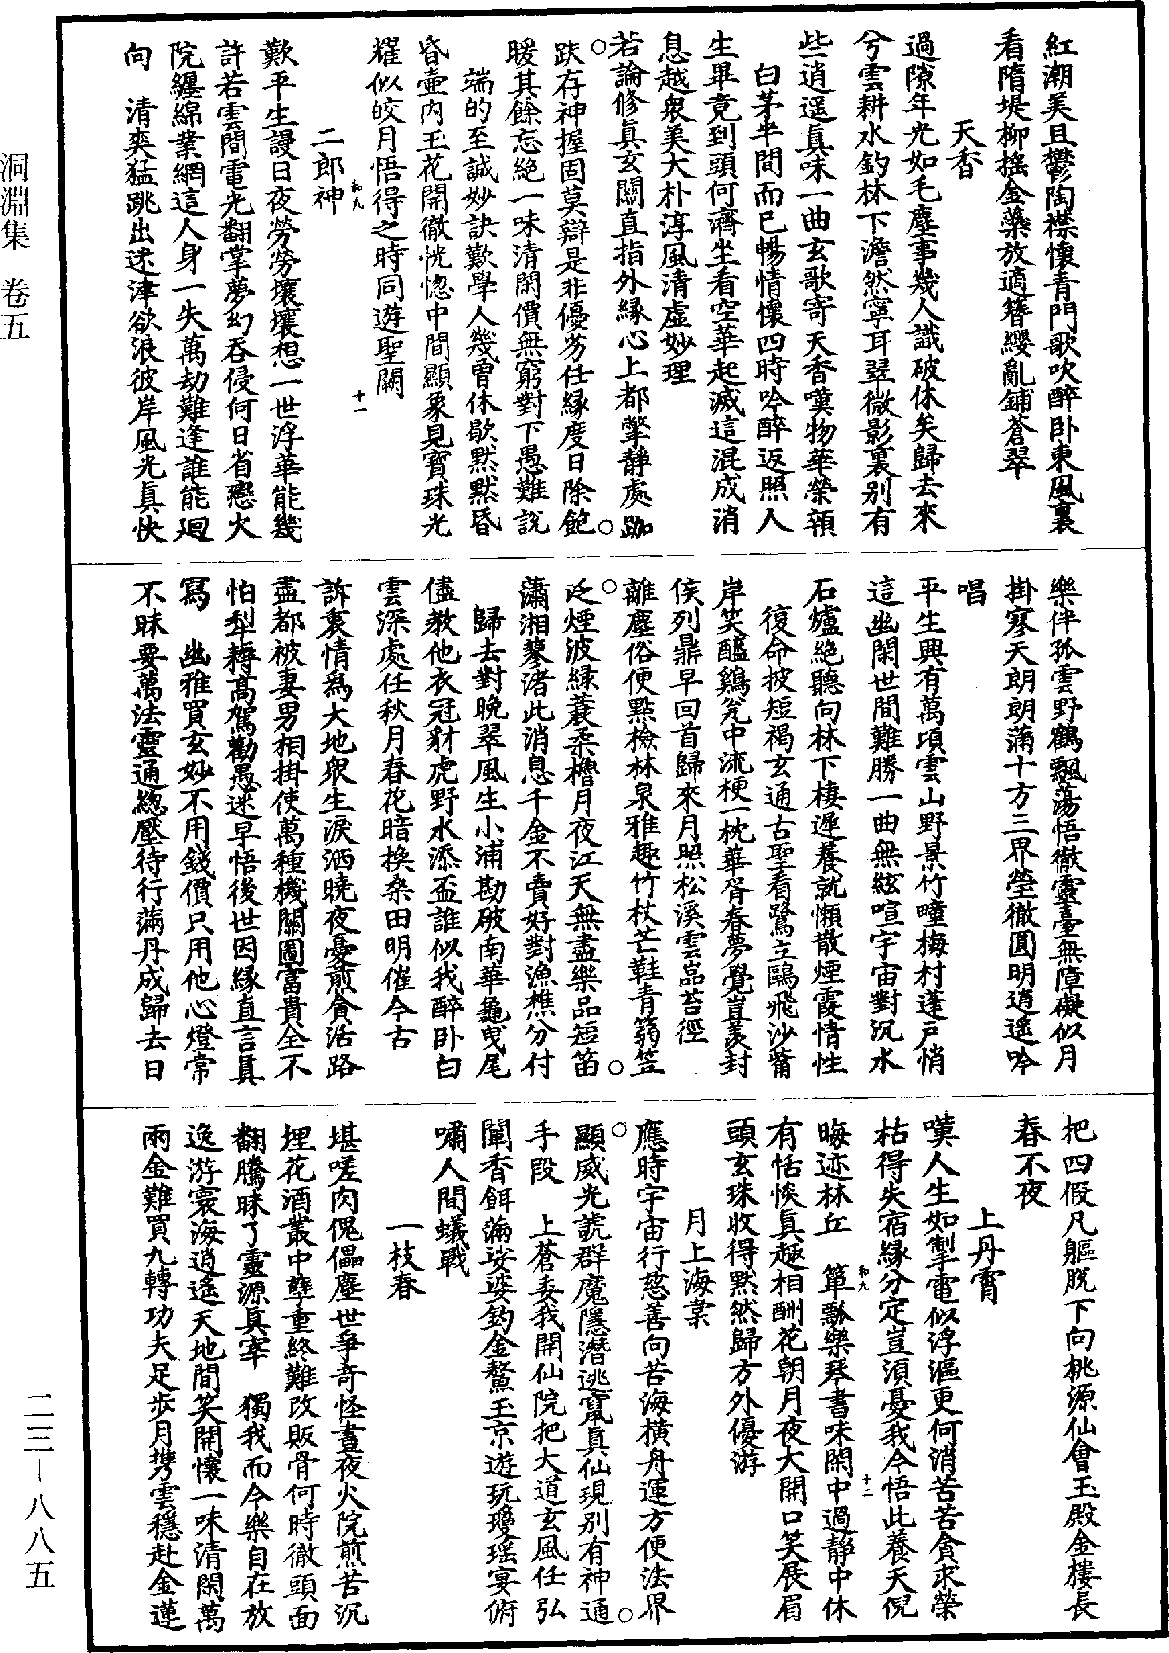 紅潮美且鬱陶襟懷青門歌吹醉卧東風裏
看隋堤柳摇金藥放適簪纓亂鋪蒼翠
天香
過隙年光如毛塵事幾人識破休矣歸去來
兮雲耕水釣林下澹然寧耳翠微影裏别有
些逍遥真味一曲玄歌寄天香嘆物華榮頟
白茅半間而已暢情懷四時吟醉返照人
生畢竟到頭何濟坐看空華起滅這混成消
息越衆美大朴淳風清虚妙理
若論修真玄關直指外縁心上都撆静處跏
趺存神握固莫辯是非優劣任縁度日除飽
暖其餘忘絶一味清閑價無窮對下愚難説
端的至誠妙訣歎學人幾曾休歇黙黙昏
昏壺内玉花開徹恍惚中間顯象見寳珠光
耀似皎月悟得之時同遊聖闕
和九
十一
二郎神
歎平生謾日夜勞勞壤壤想一世浮華能幾
許若雲間電光翻掌夢幻吞侵何日省戀火
院纒綿業網這人身一失萬劫難逢誰能廻
向　清爽猛跳出迷津欲浪彼岸風光真快
樂伴孤雲野鶴飄蕩悟徹靈臺無障礙似月
掛寒天朗朗滿十方三界瑩徹圓明逍遥吟
唱
平生興有萬頃雲山野景竹疃梅村蓬戸悄
這幽閑世間難勝一曲無絃喧宇宙對沉水
石爐絶聽向林下棲遲養就懶散煙霞情性
復命披短褐玄通古聖看鷺立鷗飛沙莆
岸笑醯鷄瓮中流梗一枕華胥春夢覺豈羡封
侯列鼎早回首歸來月照松溪雲嵓苔徑
離塵俗便㸃檢林泉雅趣竹杖芒鞋青蒻笠
泛煙波緑蓑柔櫓月夜江天無盡樂品短笛
瀟湘蓼渚此消息千金不賣好對漁樵分付
歸去對晚翠風生小浦勘破南華龜曳尾
儘教他衣冠豺虎野水添盃誰似我醉卧白
雲深處任秋月春花暗換桑田明催今古
訴衷情爲大地衆生淚洒曉夜憂煎貪活路
盡都被妻男相掛使萬種機關圖富貴全不
怕犁耬高駕勸愚迷早悟後世因縁直言具
寫　幽雅買玄妙不用錢價只用他心燈常
不昧要萬法靈通緫壓待行滿丹成歸去日
把四假凡軀脱下向桃源仙會玉殿金樓長
春不夜
上丹霄
嘆人生如掣電似浮漚更何消苦苦貪求榮
枯得失宿縁分定豈湏憂我今悟此養天倪
晦迹林丘　簞瓢樂琴書味閑中過静中休
和九
十二
有恬惔真趣相酬花朝月夜大開口笑展眉
頭玄珠收得黙然歸方外優游
月上海棠
應時宇宙行慈善向苦海横舟運方便法界
顯威光諕群魔隱潛逃竄真仙現别有神通
手段　上蒼委我開仙院把大道玄風任弘
闡香餌滿娑婆釣金鰲玉京遊玩瓊瑶宴俯
嘯人間蟻戰
一枝春
堪嗟肉傀儡塵世爭奇怪晝夜火院煎苦沉
埋花酒叢中孽重終難改販骨何時徹頭面
翻騰昧了靈源真宰　獨我而今樂自在放
逸游寰海逍遥天地間笑開懷一味清閑萬
兩金難買九轉功夫足歩月攜雲穩赴金蓮
洞淵集　卷五
二三—八八五